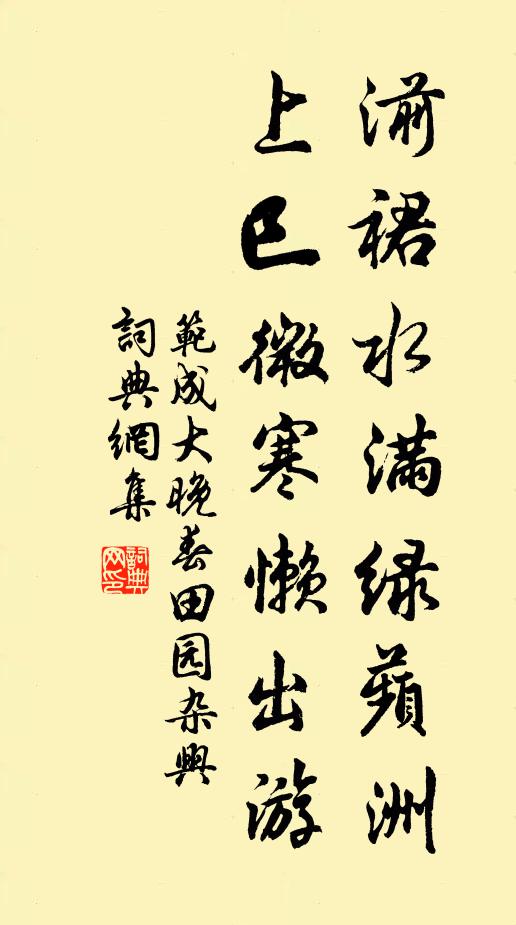 湔裙水满緑蘋洲
上巳微寒懒出游
範成大晚春田园杂興
詞典網集
詞典网印